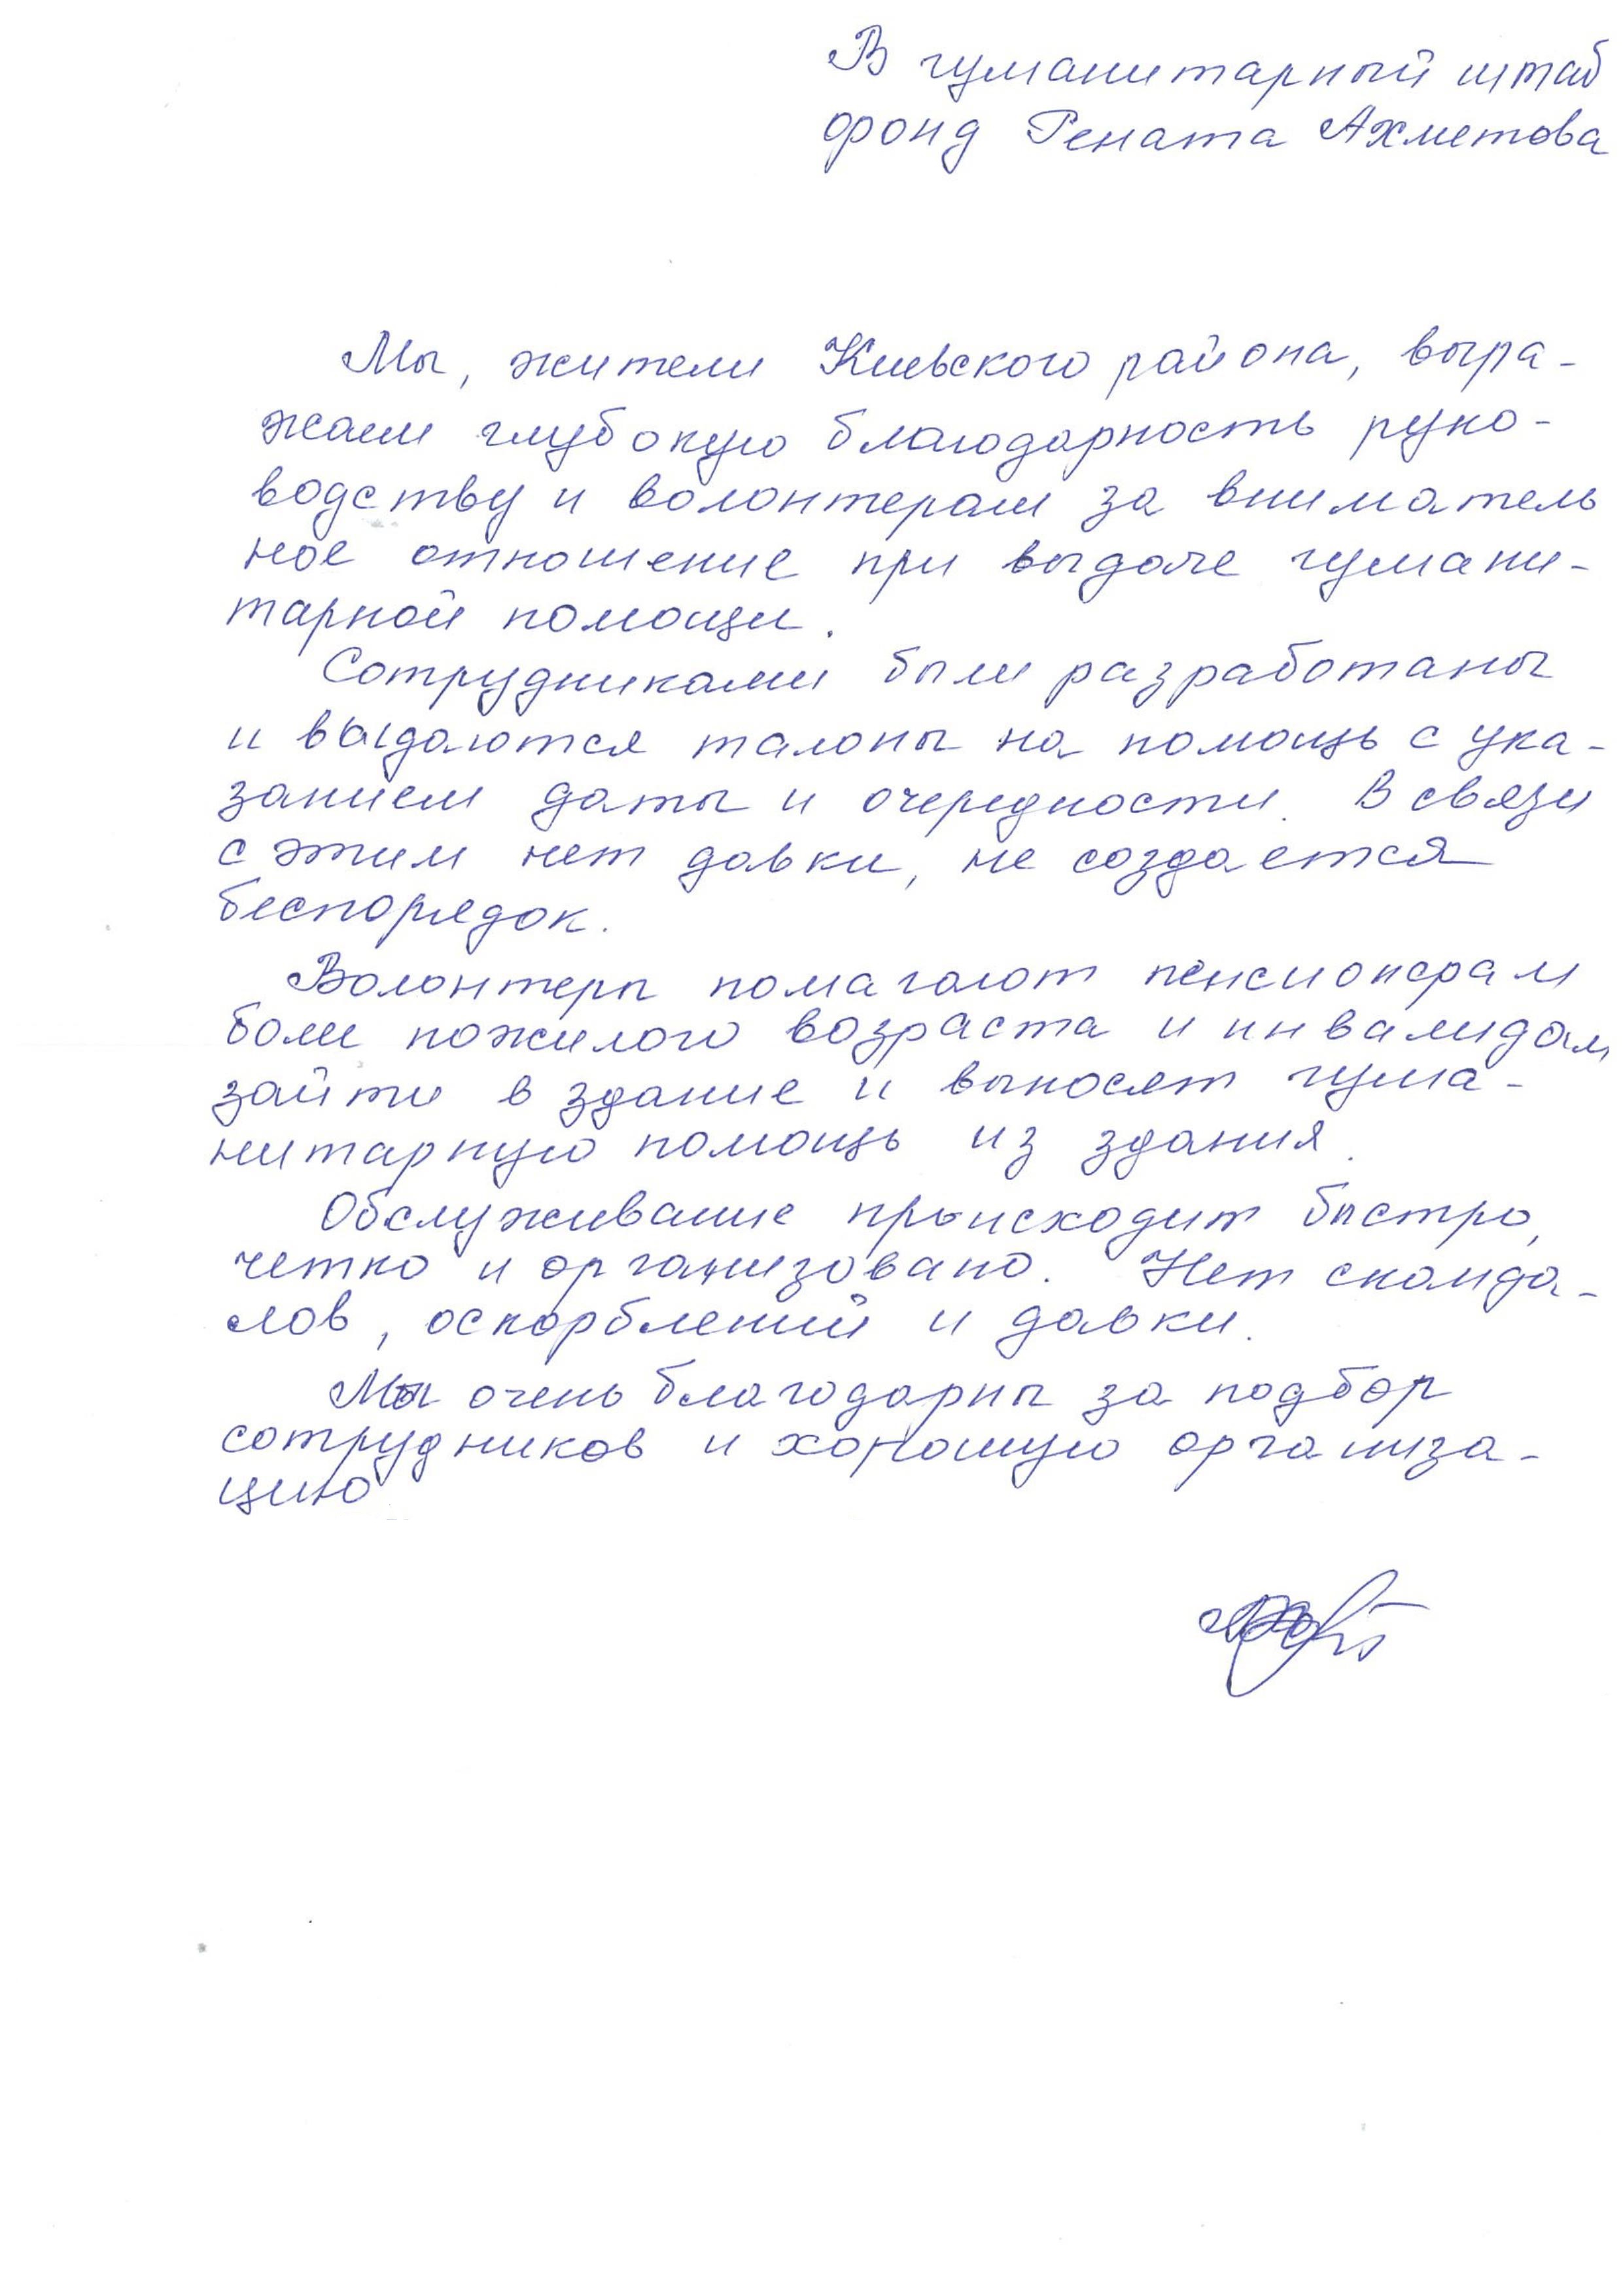 В гуманитарный штаб
фонд Рената Ахметова
Мы, жители Киевского района, выра-
жаем глубокую благодарность руко-
водству и волонтерам за вниматель
ное отношение при выдаче гумани-
тарной помощи.
Сотрудниками были разработаны
и выдаются талоны на помощь с ука-
занием даты и очередности. В связи
с этим нет давки, не создается
беспорядок.
Волонтеры помагают пенсионерам
боле пожилого возраста и инвалидам
зайти в здание и выносят гума-
нитарную помощь из здания.
Обслуживание происходит быстро,
четко и организовано. Нет сканда-
лов, оскорблений и давки.
Мы очень благодарны за подбор
сотрудников и хорошую организа-
цию